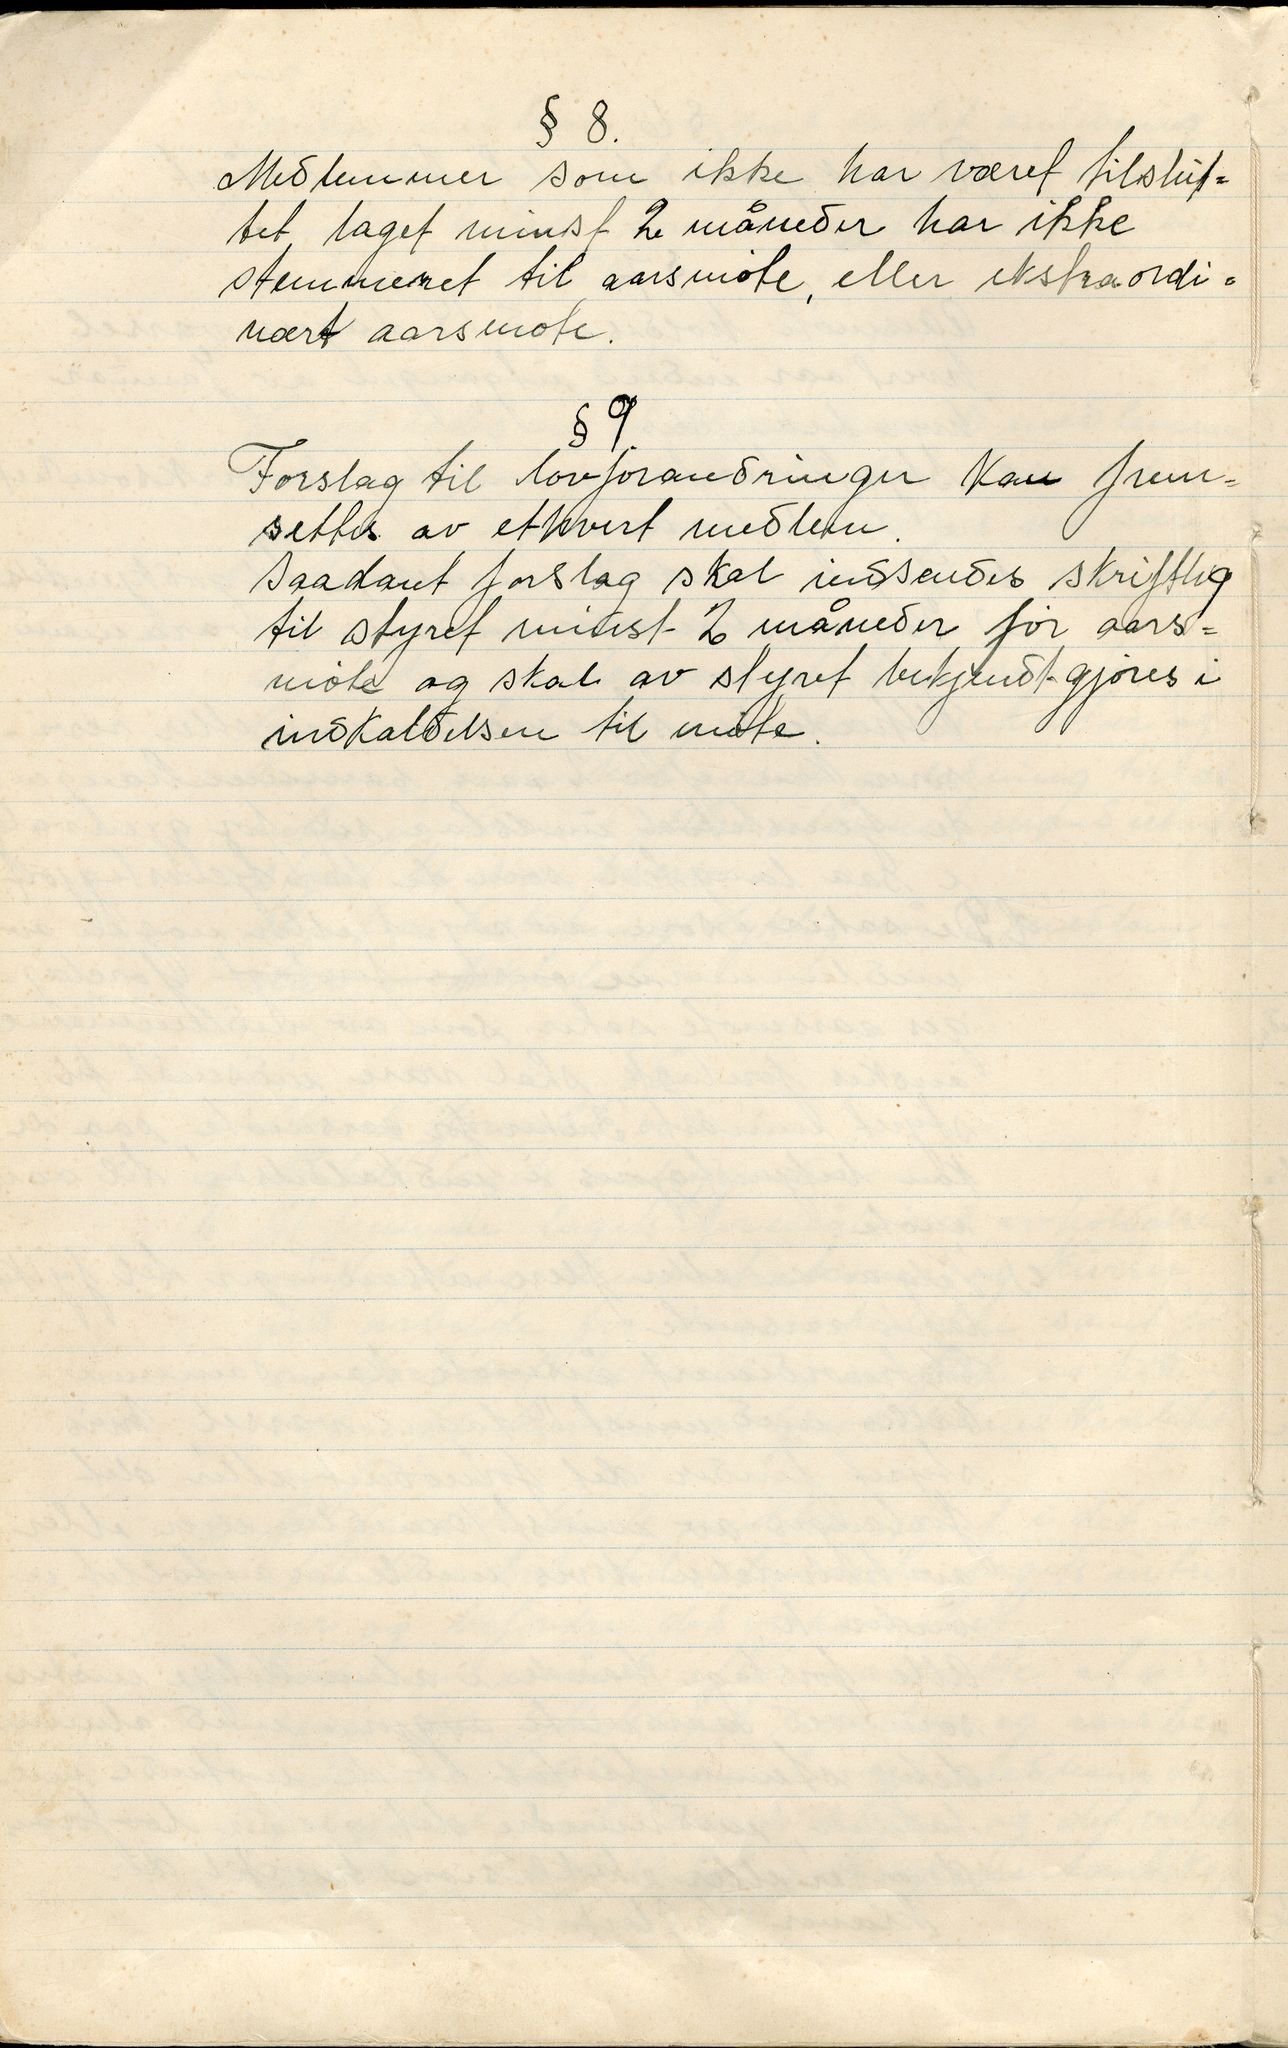 § 8.
Medlemmer som ikke har været tilslut=
tet laget minst 2 måneder har ikke
stemmeret til aarsmöte, eller ekstraordi=
nært aarsmöte.
§ 9.
Forslag til lovforandringer kan frem=
settes av ethvert medlem.
Saadant forslag skal indsendes skriftlig
til styret minst 2 måneder för aars=
möte og skal av styret bekjendtgjöres i
indkaldelsen til möte.